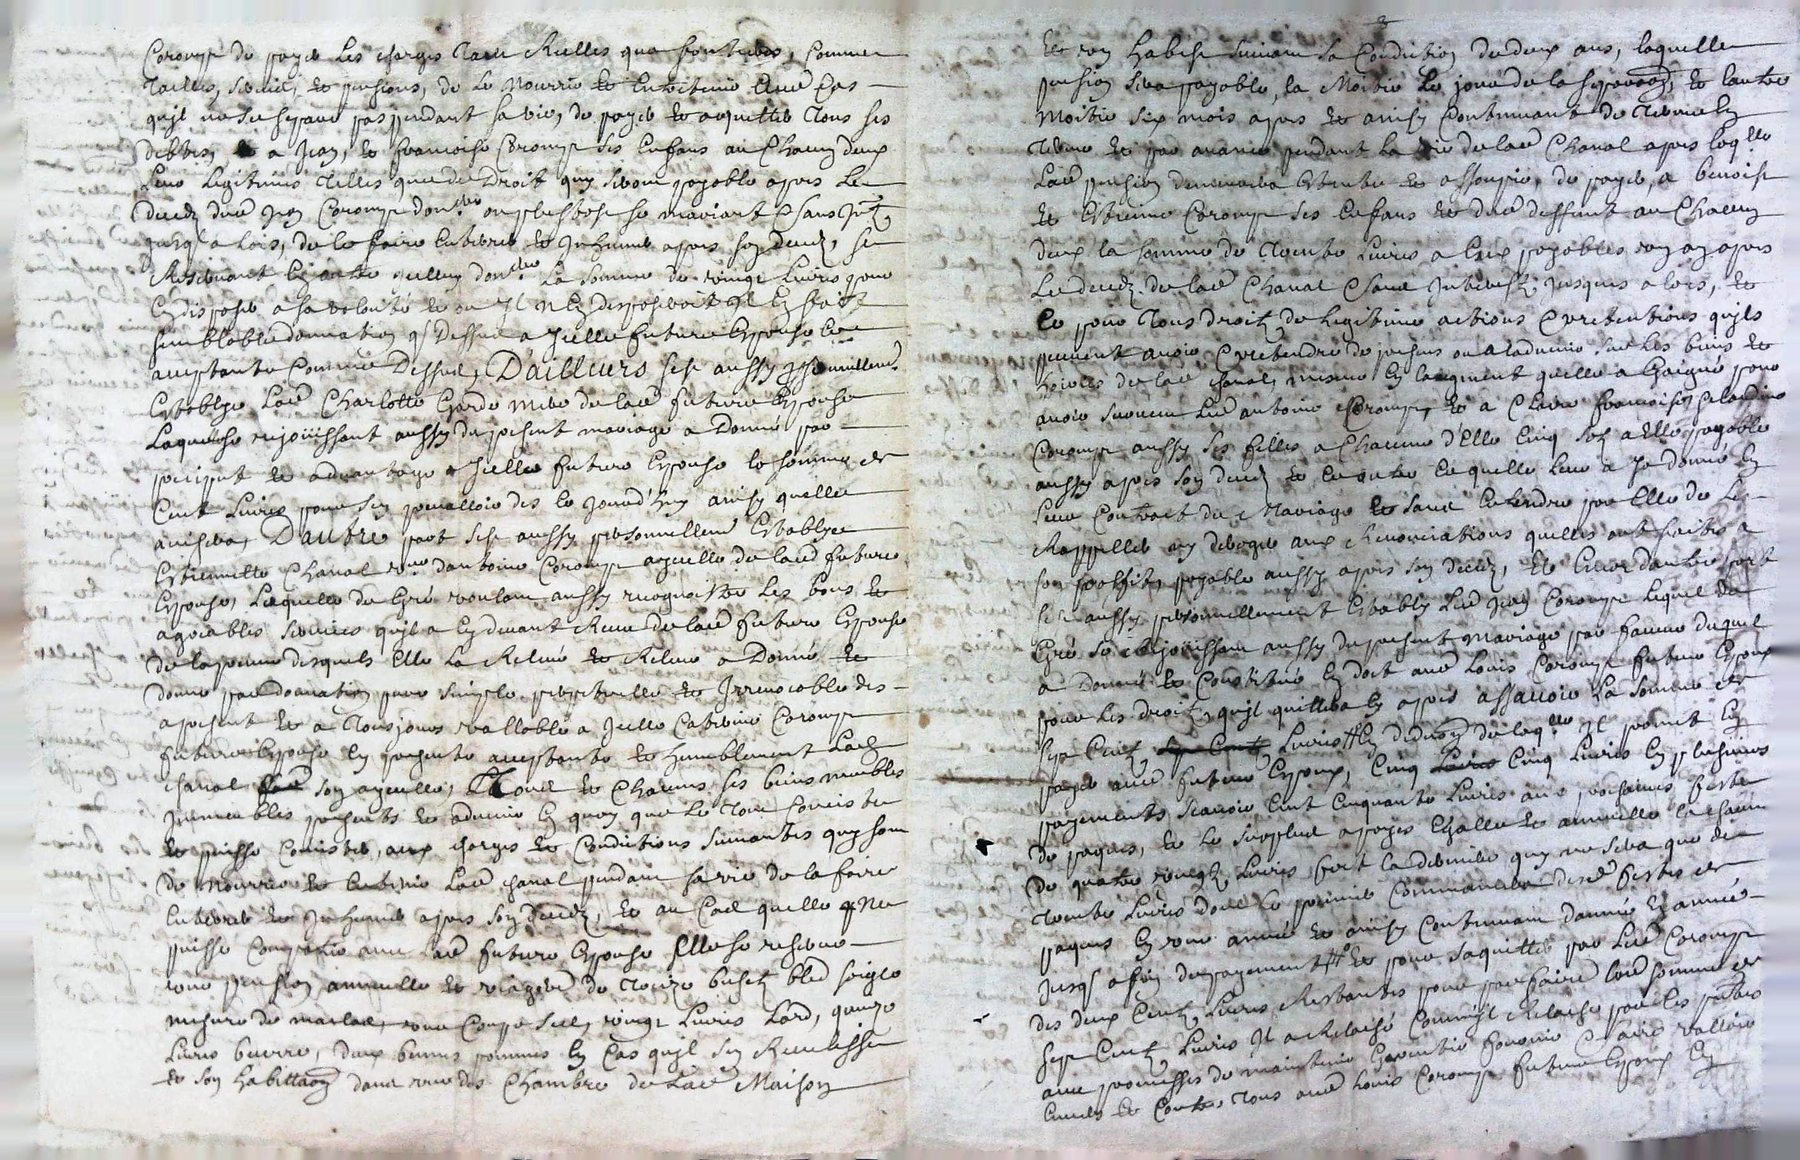 Coromp de payer les charges tant Rielles que fonturies, comme
tailles, servis, et pensions, de le nourrir et entretenir avec cas
quil ne se separe pas pendant sa vie, de payer et acquitter tous ses
debtes, et a Jean, et francoise Coromp ses enfans au chacun deux
leur legitimes telles que de droit quy seront payable apres le
deceds dud Jean Coromp donneur ou plustost se mariant sans Int
jusqu a lors, de le faire enterrer et Inhumer apres son deceds, se
Reservant en outre led donneur la somme de vingt livres pour
en disposer a sa volonté et ou Il n en disposeroit Il en fait
semblable donnation q dessus a Jcelle future Espouse
acceptante comme dessus, D'ailleurs sest aussy personnellemt
Establye lad Charlotte Garde mere de lad future Espouse
laquelle se rejouissant aussy du present mariage a donné par
precipput et advantage a Jcelle future Espouse la somme de
Cent livres pour sen prevalloir des le jourd'huy ainsy quelle
avisera, D'autre part sest aussy personnellemt Establye
Estiennette Chanal vve dantoine Coromp ayeulle de lad future
Espouse, laquelle de gré voulant aussy recognoitre les bons et
agreables services quil a cy devant Receu de lad future Espouse
de la preuve desquels elle la Relevé et Releve a donné et
donne par donnation pure simple perpetuelle et Irrevocable des
apresent et a tousjours vallable a Jcelle Catherine Coromp
future Espouse Cy presente acceptante et humblement lad
chanal son ayeulle, Tous et Chacuns ses biens meubles
Immeubles presents et advenir En quoy que le tout consiste
et puisse Consister, aux charges et Conditions suivantes quy sont
de nourrir et entretenir lad chanal pendant sa vie de la faire
enterrer et Inhumer apres son deceds, et au Cas quelle Ne
puisse compatir avec lad future Espouse elle se reserve
une pension annuelle et viagere de treize buset bled seigle
mesure de marlac, une Coupe sel, vingt livres lard, quinze
livres beurre, deux bennes pommes En Cas quil sen Receullisse
et son habittaon dans une des Chambre de lad Maison
Et un habist suivant sa Condition de deux ans, laquelle
pension sera payable, la Moitie le jour de la separaon, et lautre
Moitie six mois apres et ainsy Continuant de terme En
terme et par avance pendant la vie de lad Chanal apres laqlle
lad pension demeurera esteinte et assoupie, de payer, a benoist
et Estienne Coromp ses enfans et dud deffunt au chacun
deux la somme de trente livres a Eux payables un an apres
le deceds de lad Chanal sans Interests jusques a lors, et
ce pour tous droits de legitime actions pretentions quils
peuvent avoir pretendre de present ou a ladvenir sur les biens et
hoiries de lad chanal, mesme En laugment quelle a Gaigné pour
avoir survecu led antoine Coromp, et a Claire francoise et claudine
Coromp aussy ses filles a Chacune d'Elle Cinq sols a Elle payable
aussy apres son deceds et en outre ce quelle leur a Ja donné En
leur Contract de Mariage et sans entendre par Elle de les
Rappeller ny deroger aux Renonciations quelles ont faites a
son proffit, payable aussy apres son deceds, Et encor dautre part
sest aussy personnellement Estably led Jean Coromp lequel de
Gré se resjouissant aussy du present mariage par faveur duquel
a donné et Constitué En dot aud Louis Coromp futeur Espoux
pour les droits quil quittera Cy apres assavoir la somme de
sept Cents livres En deducon de laqlle Il promet En
payer aud futeur Espoux, Cinq Cinq livres En plusieurs
payements scavoir Cent Cinquante livres aux prochaines festes
de paques, et le surplus a payes Egalle et annuelle la chacun
de quatre vingts livres fort la derniere quy ne sera que de
trente livres dont le premier Commancera desd festes de
paques En une année et ainsy Continuant dannée En année
jusqu a fin de payement et pour saquitter par led Coromp
des deux Cents livres Restantes pour parfaire lad somme de
sept Cents livres Il a Relaché Comme Il Relache par les presentes
avec promesses de maintenir Garentir fournir et faire valloir
Envers et Contre tous aud Louis Coromp futeur Espoux En